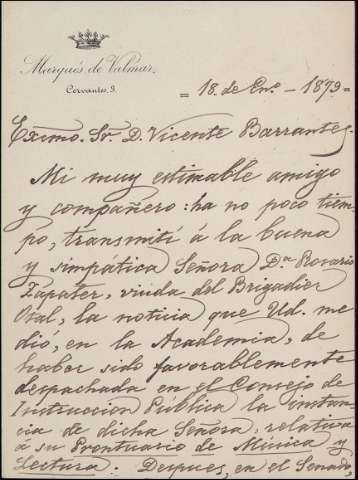 Marqués de Valmar.
Cervantes, 9.
= 18. de En.º - 1893 =
Excmo. Sr. D. Vicente Barrantes.
Mi muy estimable amigo
y compañero: ha no poco tiem-
po, transmití á la buena
y simpática Señora D.ª Rosario
Zapater, viuda del Brigadier
Oxal, la noticia que Ud. me
dió, en la Academia, de
haber sido favorablemente
despachada en el Consejo de
Instruccion Pública la instan-
cia de dicha Señora, relativa
á su Prontuario de Música y
Lectura. Despues, en el Senado,